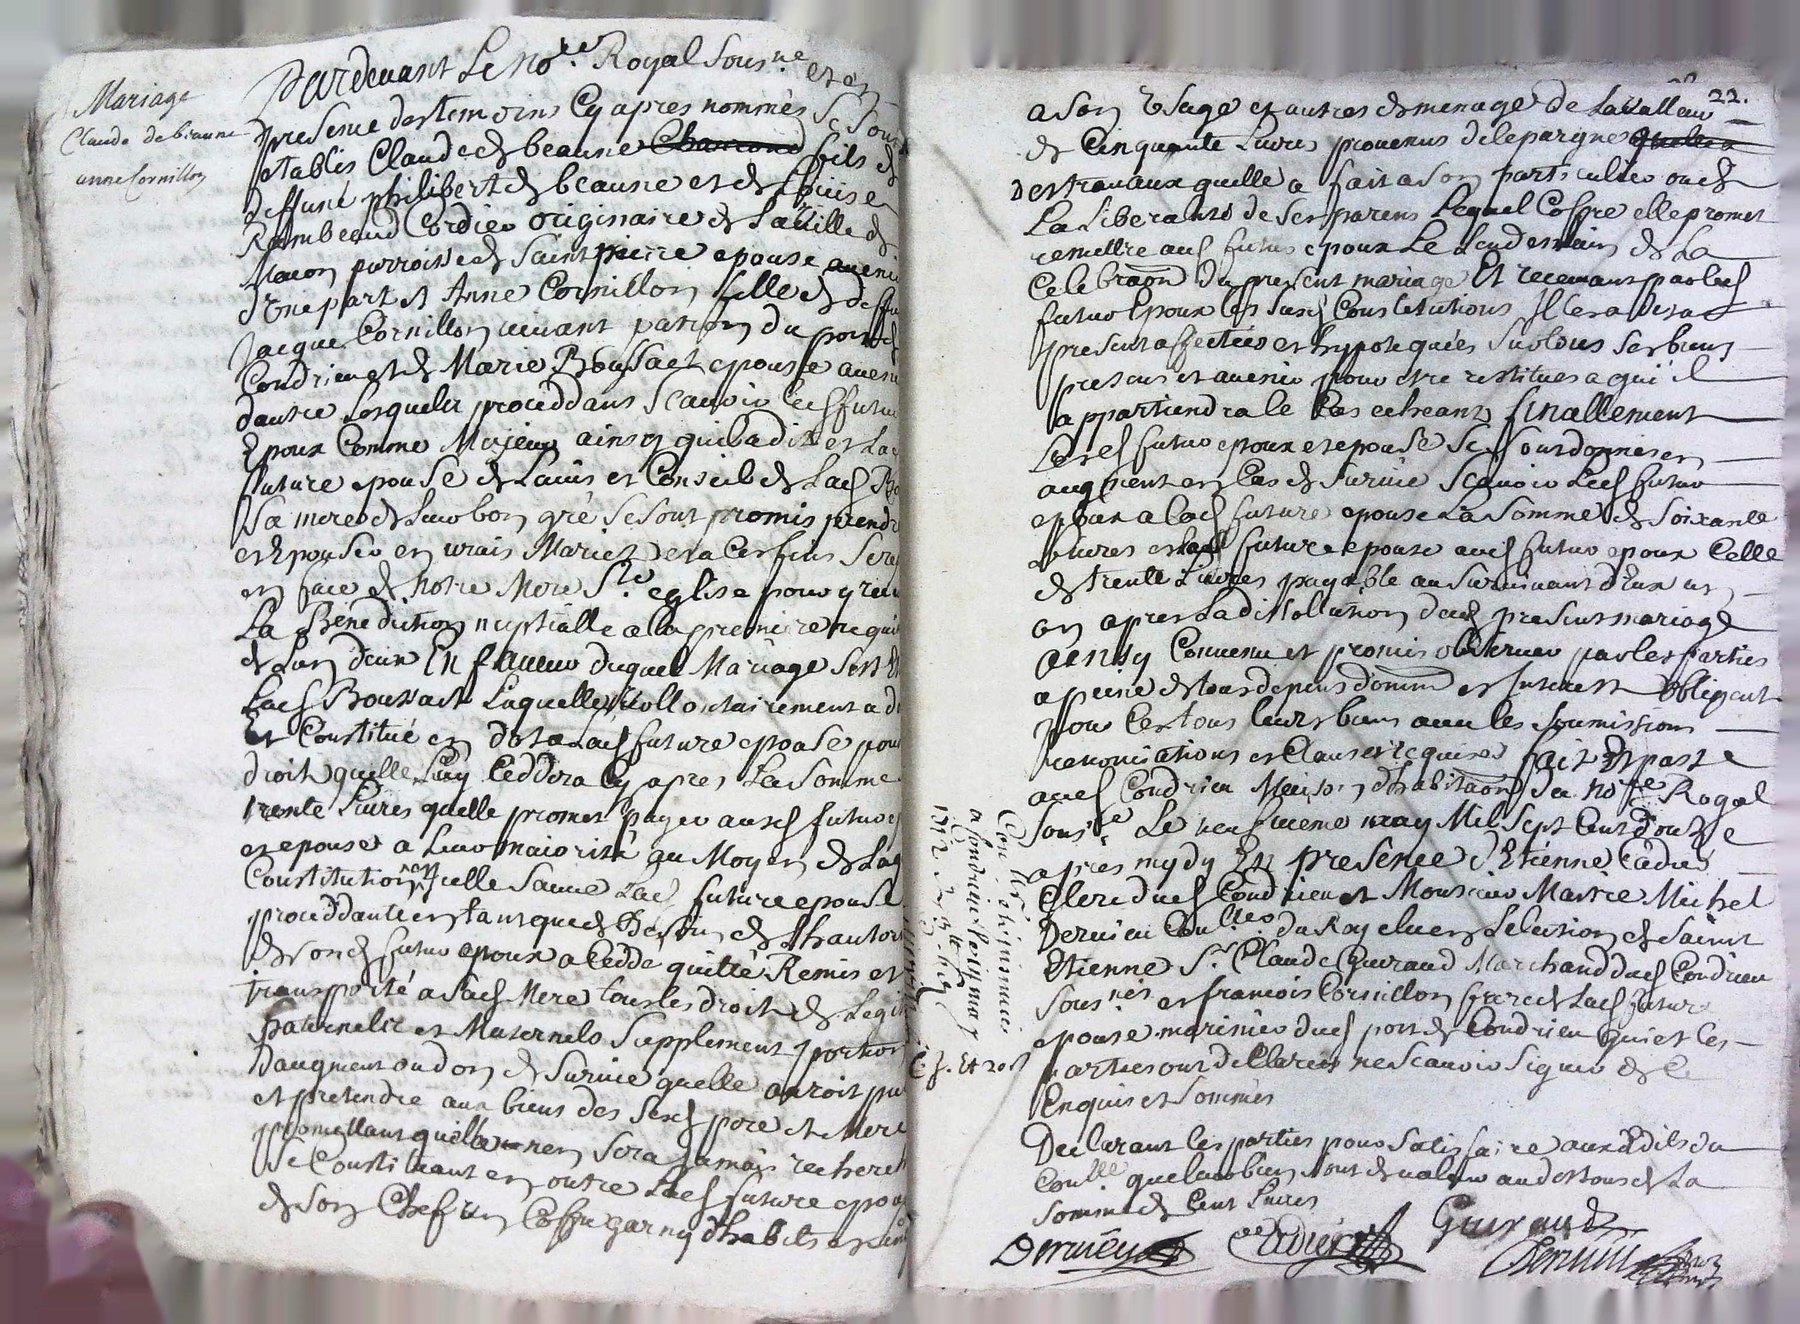 Mariage
Claude de beaune
anne Cornillon
Pardevant Le No.re Royal Sous.ne et en
presence des temoins Cy apres nommés Se Sont
etablis Claude de beaune Charcond fils de
deffunt philibert de beaune et de Louise
Rambeaud Cordier originaire de La Ville de
Macon parroisse de Saint pierre epoux avenir
d'une part et Anne Cornillon fille de deffu
Jacque Cornillon vivant patron du port de
Condrieu et de Marie Boussact epouse avenir
dautre Lesquels proceddans Scavoir Led futur
Epoux Comme Majeur ainsy quil a dit et Lad
future epouse de Lavis et Conseil de Lad Bo
Sa mere de Leur bon gré Se Sont promis prendre
et Epouser en vrais Mariez et a Ces fins Sera
en face de Notre Mere S.te eglise pour y recev
La Benediction nuptialle a la premiere requi
de Lun deux En faveur duquel Mariage Sest Et
Lad Boussact Laquelle Vollontairement a d
Et Constitué en dot a Lad future epouse pour
droit quelle Luy Ceddera Cy apres La Somme
trente Livres quelle promet payer ausd futur
et epouse a Leur maiorité au Moyen de Laq
Constitution icelle Lad future epouse
proceddante en tant que de Besoin de Lhautori
de Sond futur epoux a Cedde quitté Remis et
transporté a Sad Mere tous les droits de Legit
paternelle et Maternels Supplement portion
daugment ou don de Survie quelle auroit pu
et pretendre aux biens des Sesd pere et Mere
promettant quelle nen Sera jamais recherch
Se Constituant en outre Lad future epous
de Son Chef un Coffre garny dhabits et lin
22.
a son Usage et autres de menage de La Valleur
de Cinquante Livres provenus de lepargne quelle a
des travaux quelle a fait a Son particulier ou de
La Liberalité de Ses parens Lequel Coffre elle promet
remettre aud futur epoux Le Lendemain de La
Celebraon du present mariage Et recevant par led
futur Epoux les Susd Constitutions Il les a des a
present affectées et hypotequées Sur tous Ses biens
presens et avenir pour etre restitues a qui il
appartiendra le Cas echeant finallement
Lesd futur epoux et epouse Se Sont donnés en
augment en Cas de Survie Scavoir Led futur
epoux a lad future epouse La Somme de Soixante
Livres et lad future epouse aud futur epoux Celle
de trente Livres payable au Survivant d'Eux un
an apres La dissolution dud present mariage
ainsy Convenu et promis observer par les parties
a peine de tous depens domm et Interest obligeant
pour Ce tous leurs biens avec les Soumissions
renonciations et Clauses requises fait et passé
aud Condrieu Maison d'habitaon du No.re Royal
Sous.e Le neufvieme may Mil Sept Cent douze
apres mydy En presence d'Etienne Cadier
Clerc dud Condrieu et Monsieur Maitre Michel
Dervieu Con.ller du Roy eluen Lelection de Saint
Etienne S.r Claude Guiraud Marchand dud Condrieu
Sous.nés et francois Cornillon frere de Lad future
epouse marinier dud port de Condrieu qui et les
parties ont declaré ne Scavoir Signer de Ce
Enquis et Sommés
Declarant les parties pour Satisfaire aux Edits du
Con.lle que leurs biens Sont de valeur au dessous de La
Somme de Cent Livres
Dervieu
Cadier
Guiraud
Dervieu
Con.llé
a Condrieu le 19 may
1712